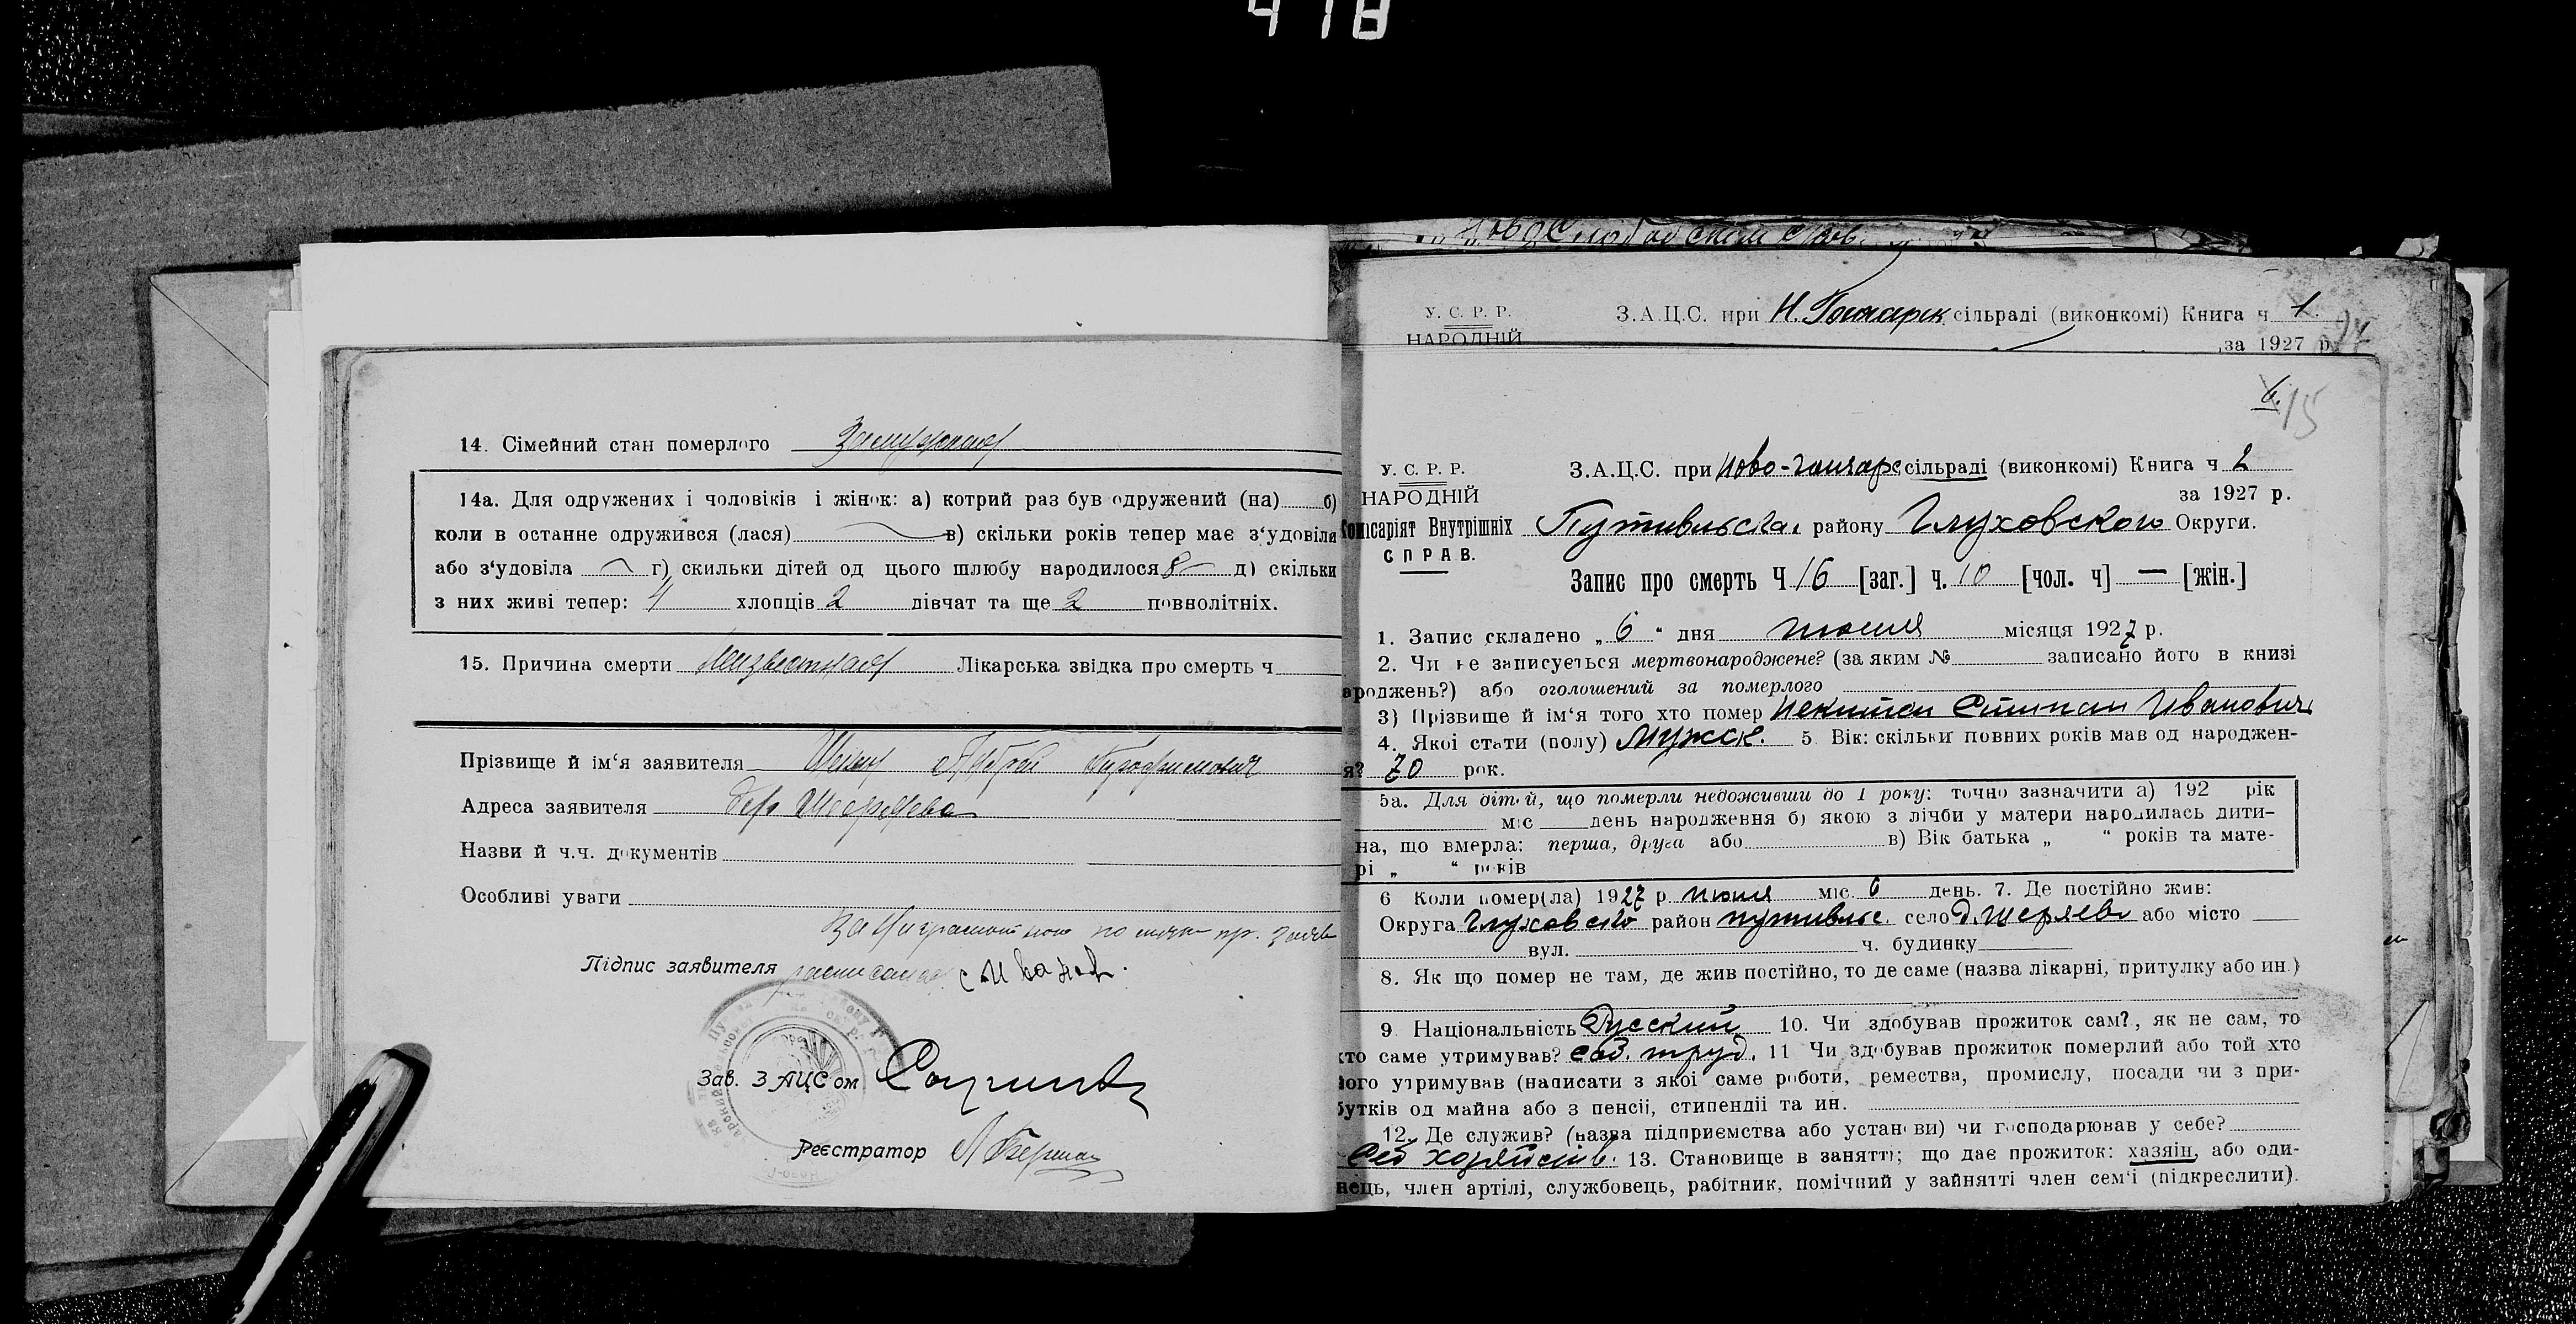 418
14. Сімейний стан померлого Замужная
14а. Для одружених і чоловіків і жінок: а) котрий раз був одружений (на) б)
коли в останне одружився (лася) в) скільки років тепер має з‘удовіли
або з‘удовіла г) скильки дітей од цього шлюбу народилося 8 д) скільки
з них живі тепер: 4 хлопців 2 дівчат та ще 2 повнолітніх.
15. Причина смерти Неизвестная Лікарська звідка про смерть ч
Прізвище й ім‘я заявителя
Адреса заявителя
Назви й ч.ч. документів
Особливі уваги
За неграмотного по
Підпис заявителя расписался Иванов.
Зав. ЗАЦСом
Реєстратор
У. С. Р. Р. З.А.Ц.С. при Н. Гончарск сільраді (виконкомі) Книга ч 1.
НАРОДНІЙ за 1927 р.
6. 15
У. С. Р. Р. З.А.Ц.С. при Ново-гончарс сільраді (виконкомі) Книга ч 2
НАРОДНІЙ за 1927 р.
Комісаріят Внутрішніх Путивльская району Глуховского Округи.
СПРАВ.
Запис про смерть Ч 16 [заг.] ч. 10 [чол. ч] — [жін.]
1. Запис складено „ 6 “ дня июня місяця 1927 р.
2. Чи не записується мертвонароджене? (за яким № записано його в книзі
ароджень?) або оголошений за померлого
3) Прізвище й ім‘я того хто помер Иванович
4. Якої стати (полу) Мужск. 5. Вік: скільки повних років мав од народжен-
я? 70 рок.
5а. Для дітей, що померли недоживши до 1 року: точно зазначити а) 192 рік
міс день народження б) якою з лічби у матери народилась дити-
на, що вмерла: перша, друга або в) Вік батька „ “ років та мате-
рі „ “ років
6 Коли помер(ла) 1927 р. июня міс. 6 день. 7. Де постійно жив:
Округа Глуховского район путивльс. село д. Шеряева або місто
вул. ч. будинку
8. Як що помер не там, де жив постійно, то де саме (назва лікарні, притулку або ин.)
9. Національність Русский 10. Чи здобував прожиток сам?, як не сам, то
хто саме утримував? соб. труд. 11 Чи здобував прожиток померлий або той хто
його утримував (написати з якої саме роботи, ремества, промислу, посади чи з при-
бутків од майна або з пенсії, стипендії та ин.
12. Де служив? (назва підприємства або установи) чи господарював у себе?
Сел хозяйств. 13. Становище в занятті; що дає прожиток: хазяін, або оди-
нець, член артілі, службовець, рабітник, помічний у зайнятті член сем‘ї (підкреслити).